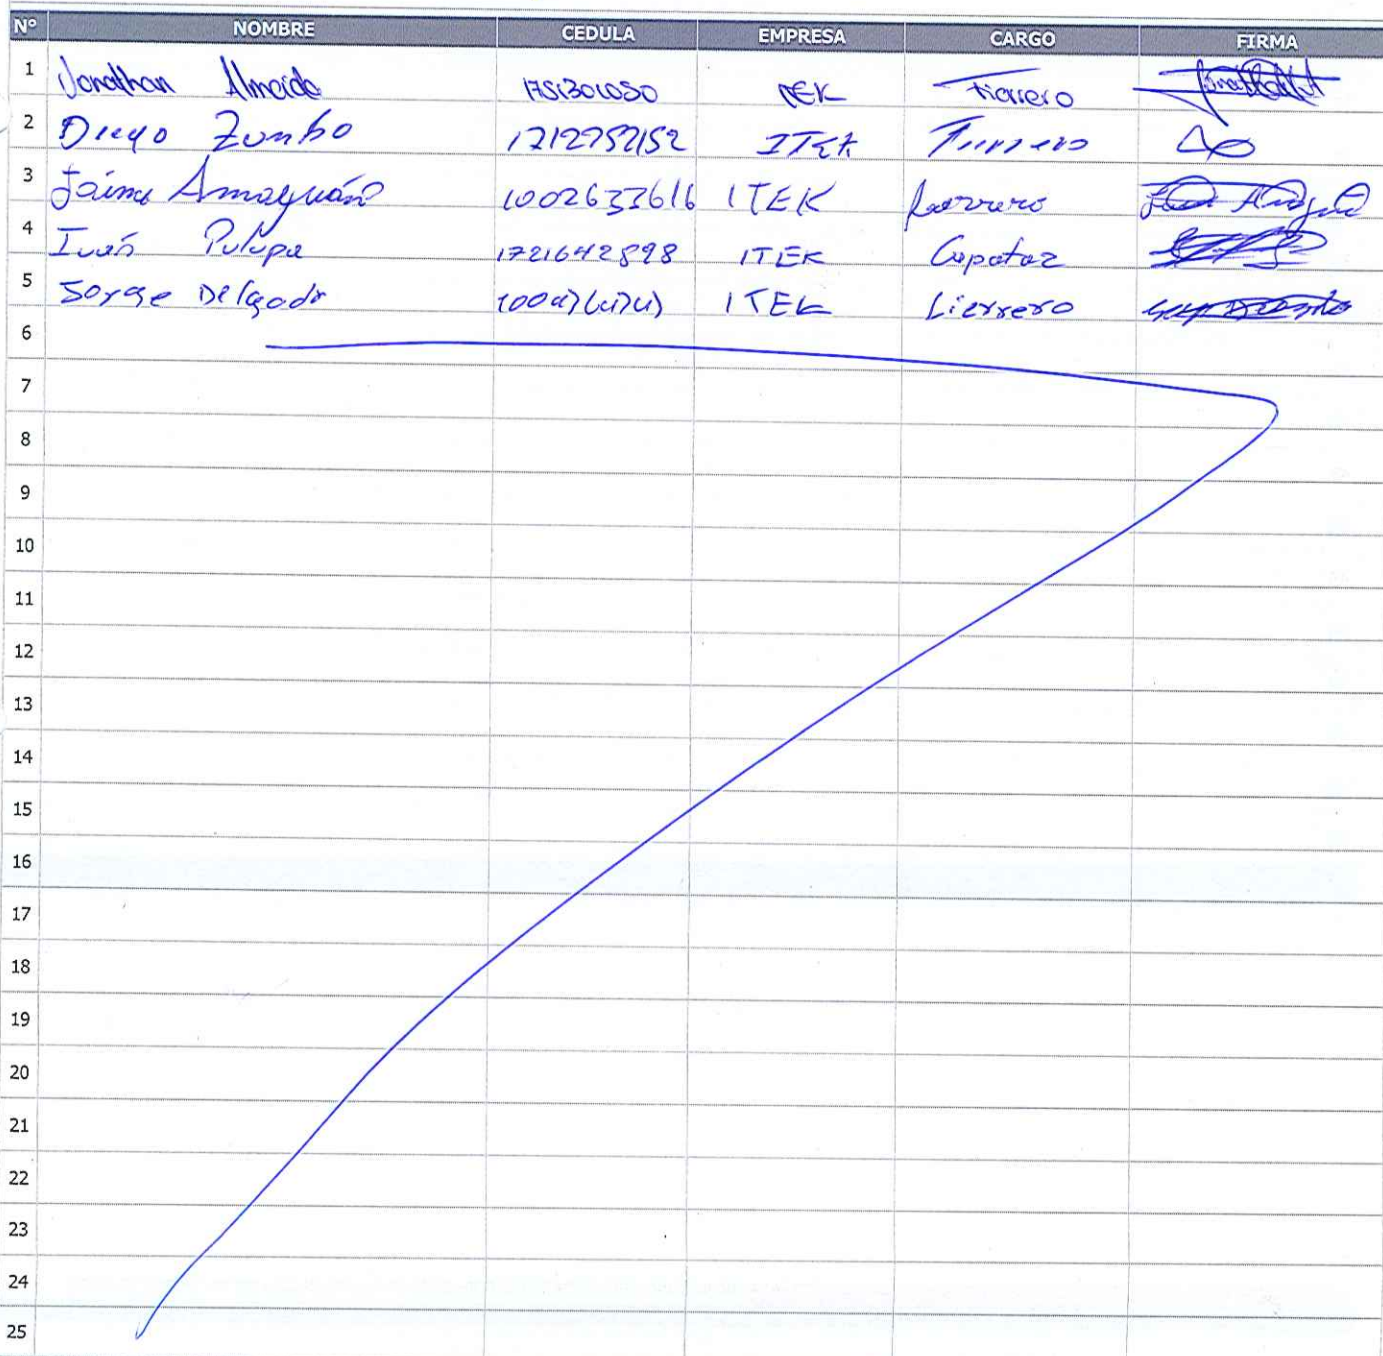 N° NOMBRE CEDULA EMPRESA CARGO FIRMA
1 Jonathan Almeida ITEK Fierrero
2 Diego Zumbo 1712757152 ITEK Fierrero
3 Jaime Amaguaña 1002633616 ITEK
4 Iván Pulupa 1721642898 ITEK Capataz
5 Jorge Delgado ITEK Fierrero
6
7
8
9
10
11
12
13
14
15
16
17
18
19
20
21
22
23
24
25